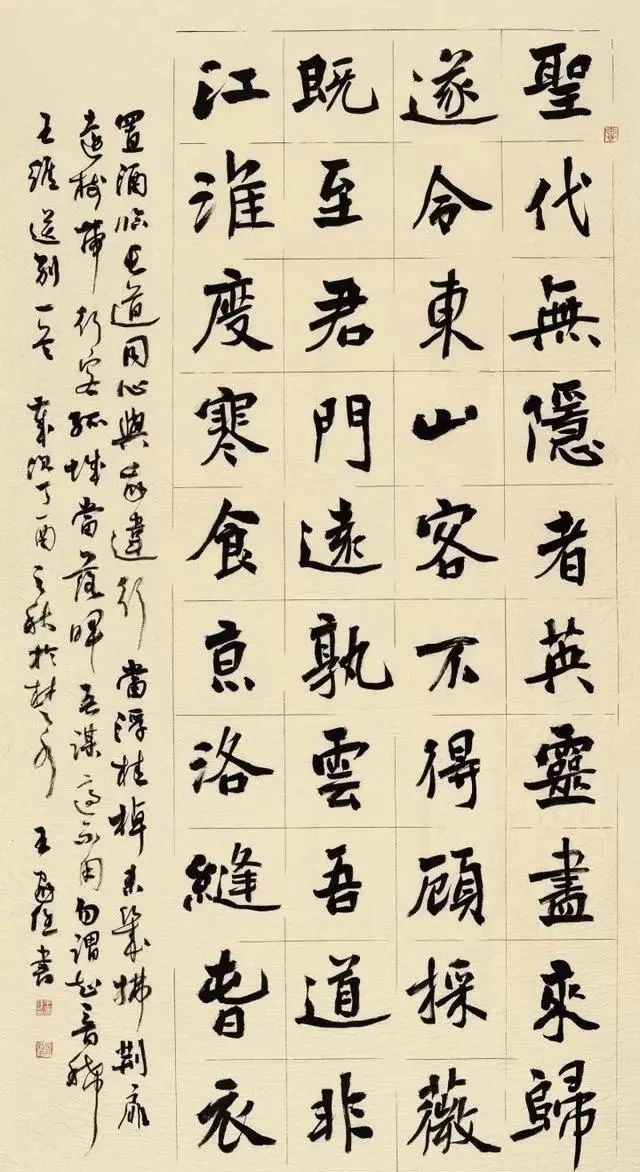 聖代無隱者英靈盡來歸
遂令東山客不得顧採薇
既至君門遠孰雲吾道非
江淮度寒食亰洛縫旾衣
置酒臨長道同心與我違行當浮桂棹未幾拂荊扉
遠樹帶行客孤城當落暉吾謀適不用勿謂知音稀
王維送別一首歲次丁酉之秋於楚水王書